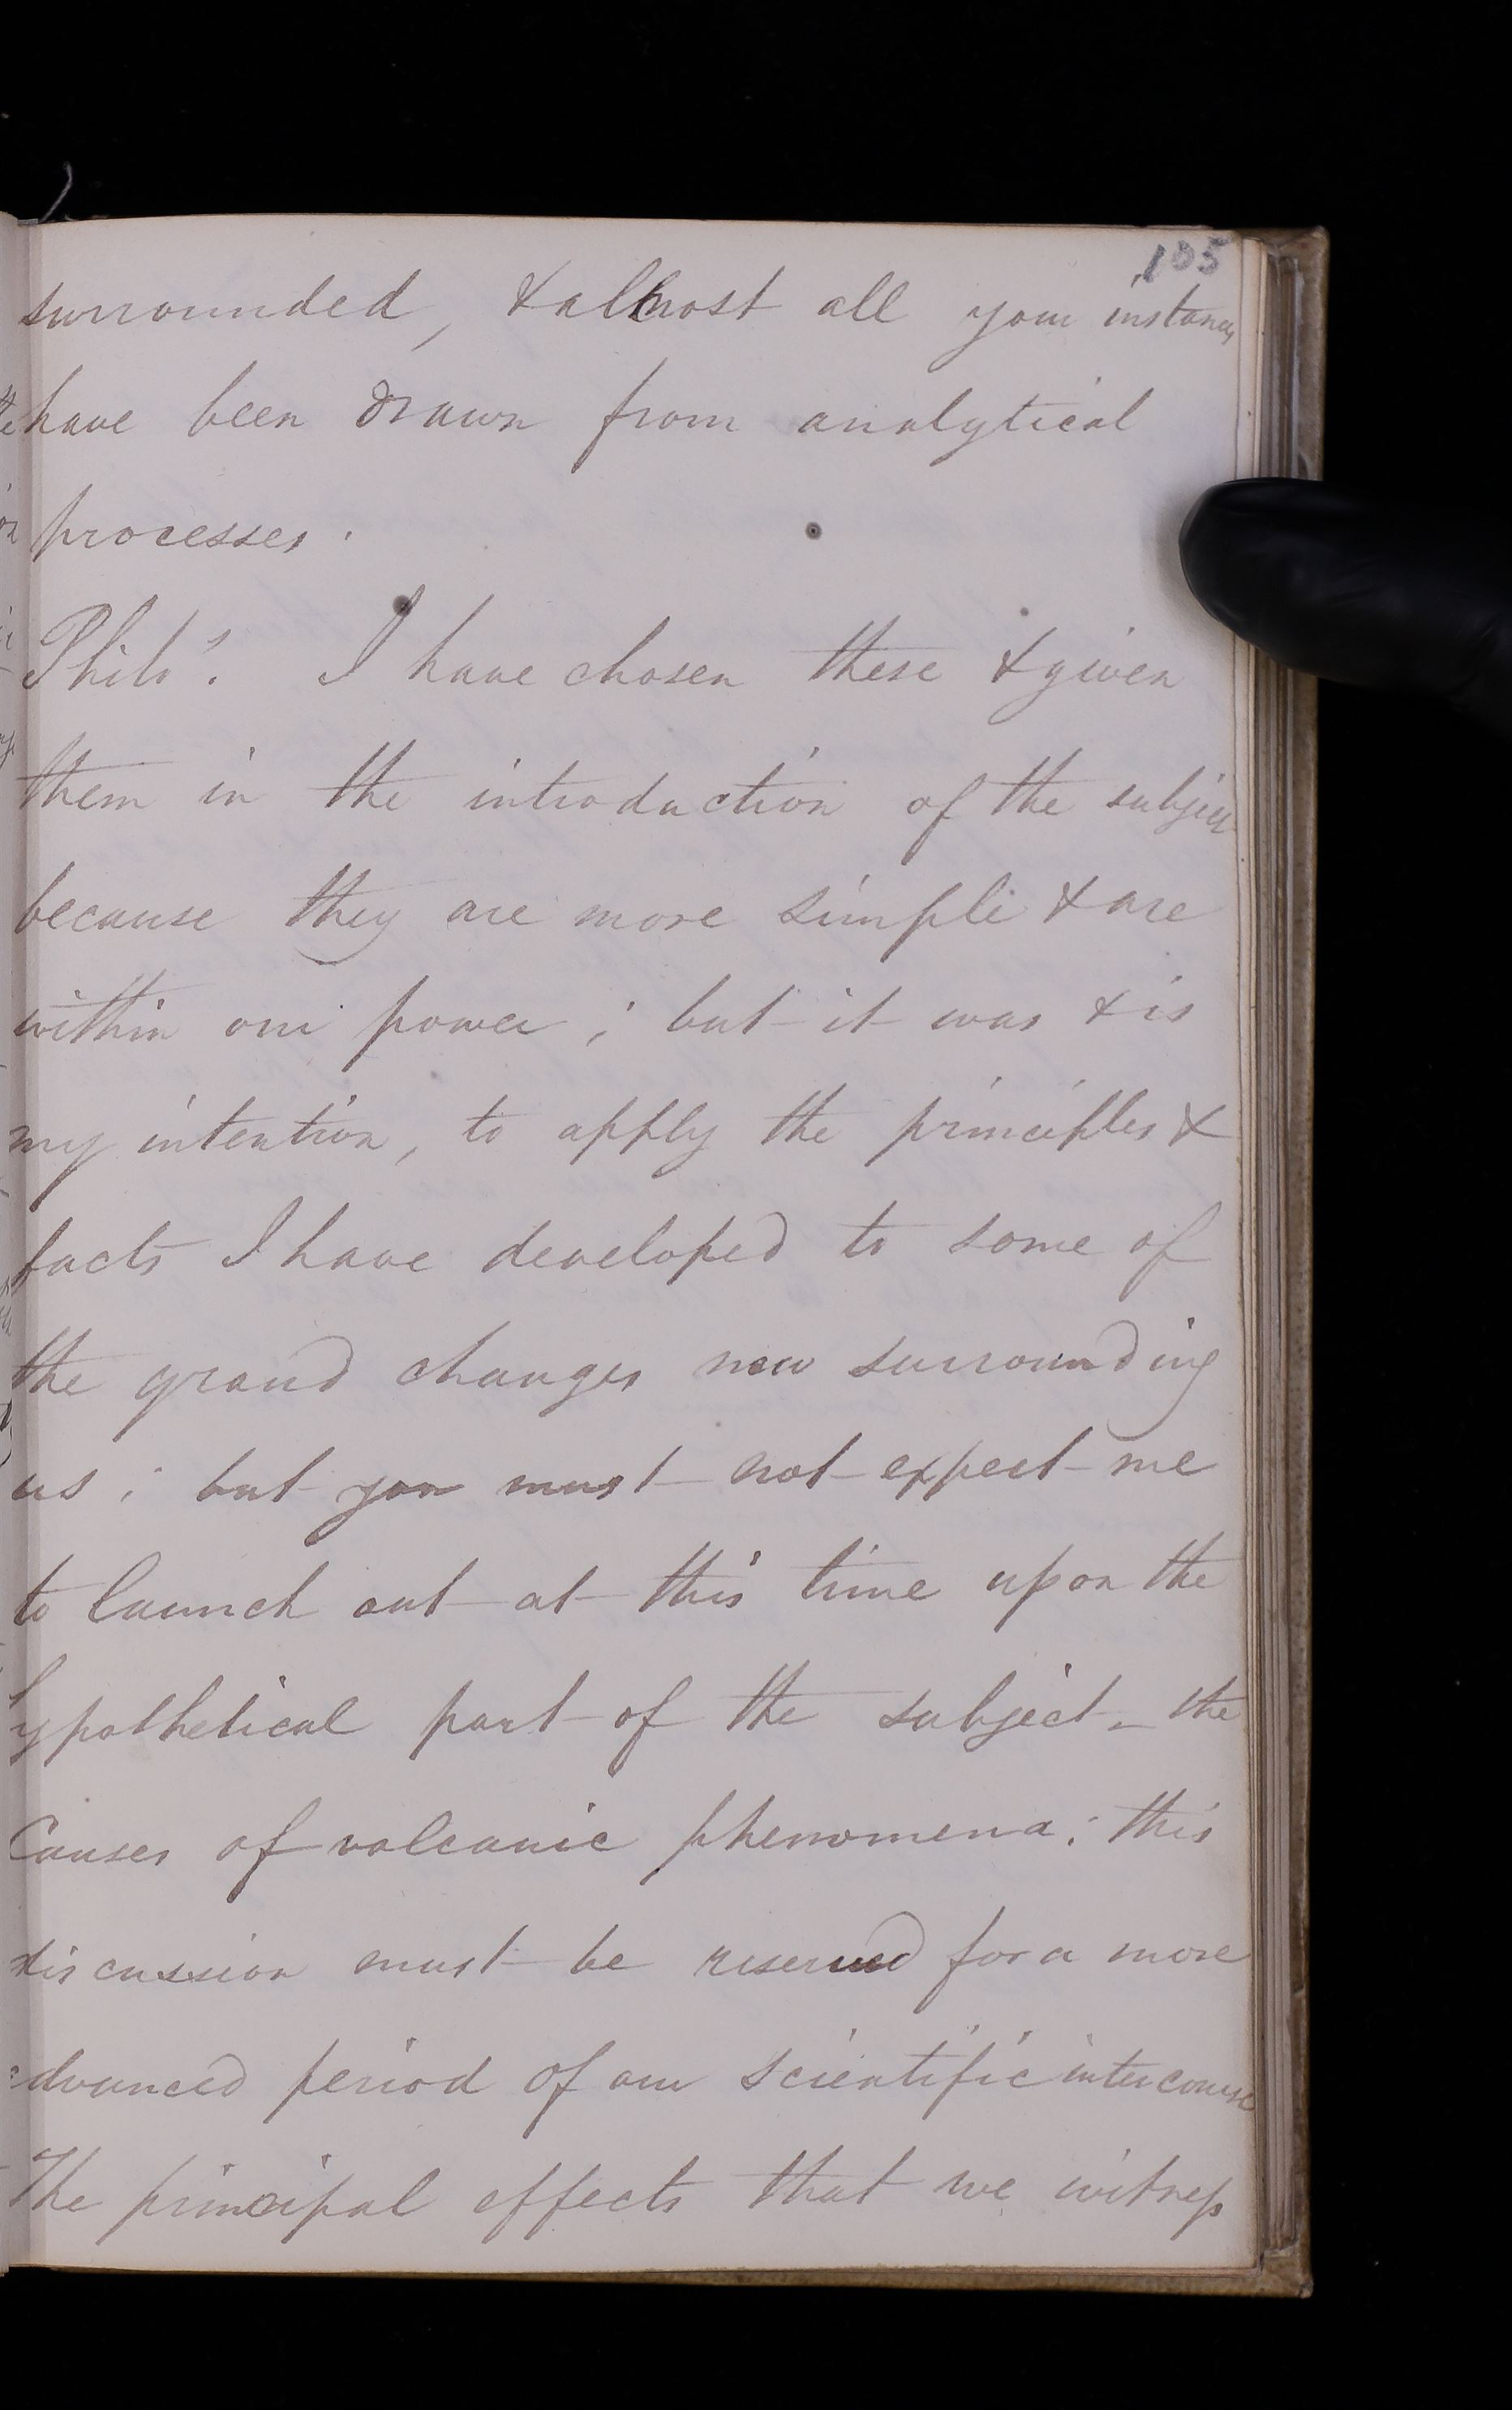 105
surrounded, & almost all your instances
have been drawn from analytical
processes.
Philo'. I have chosen these & given
them in the introduction of the subject
because they are more simple & are
within our power; but it was & is
my intention, to apply the principles &
facts I have developed to some of
the grand changes now surrounding
us; but you must not expect me
to launch out at this time upon the
hypothetical part of the subject - the
Causes of volcanic phenomena; this
discussion must be reserved for a more
advanced period of our scientific intercourse
The principal effects that we witness